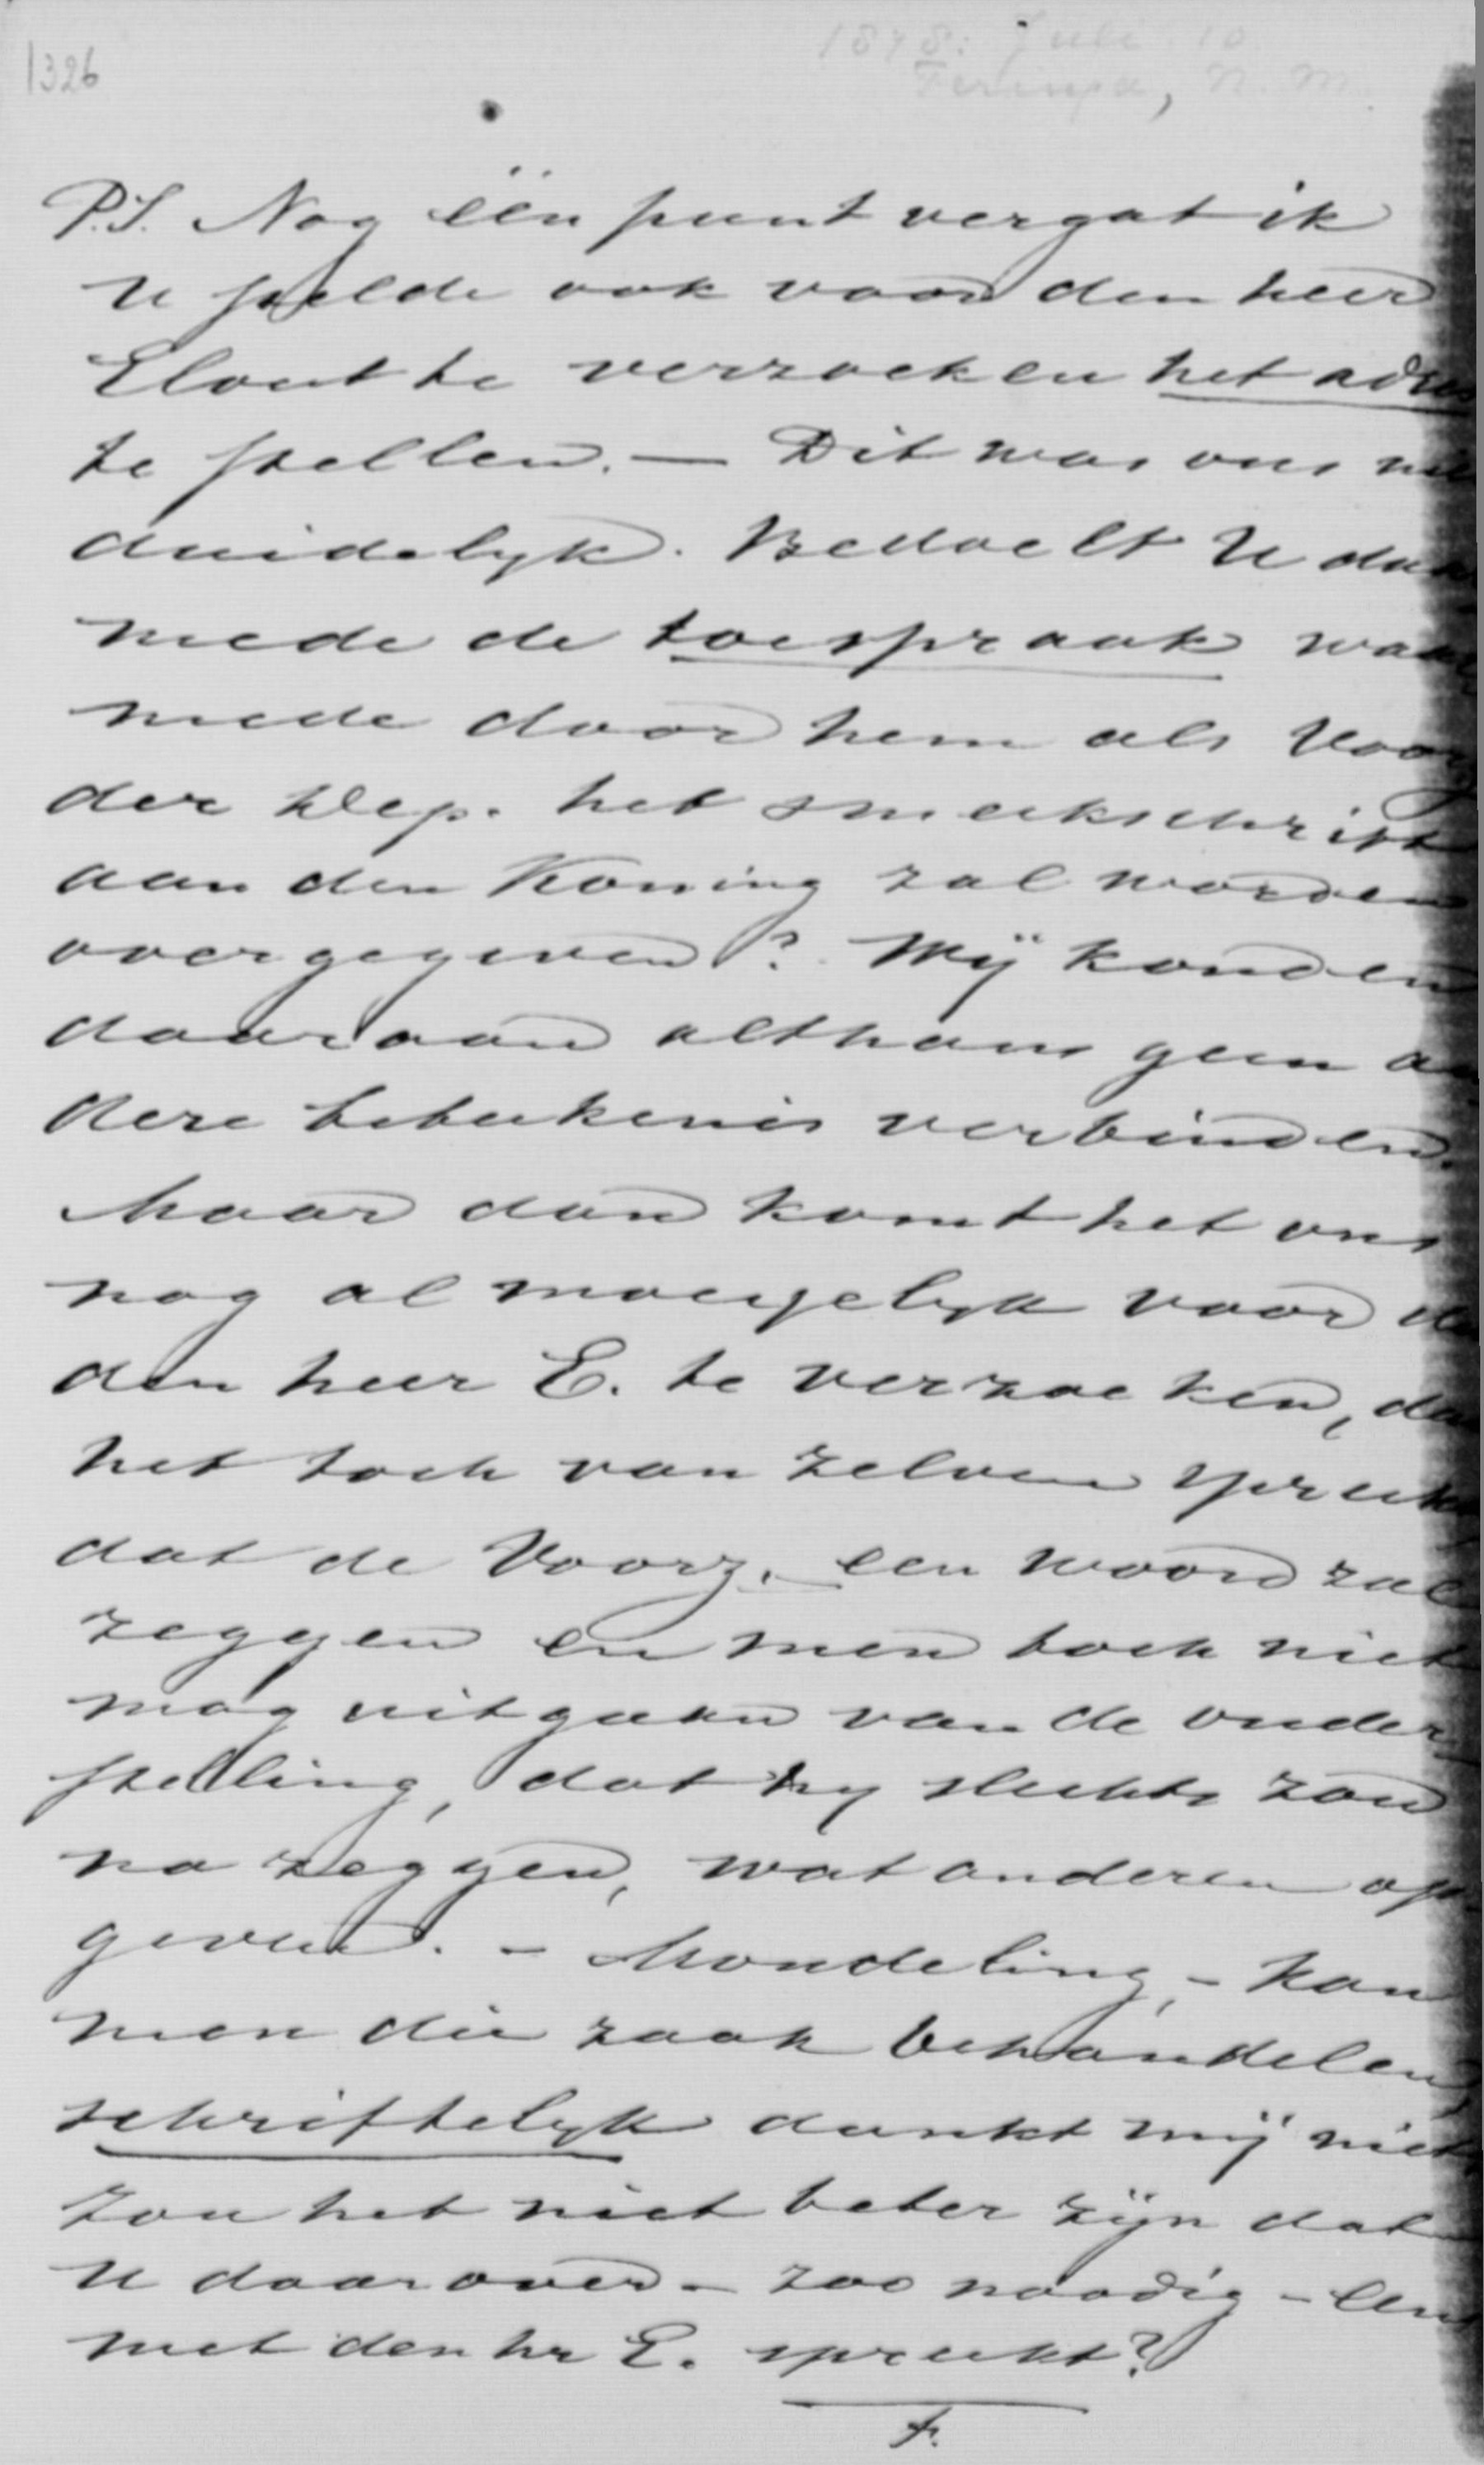 1326
1878: Juli 10
Feringa, N. M.
P.S. Nog één punt vergat ik
U stelde ook voor den heer
Elout te verzoeken het adres
te stellen. — Dit was ons niet
duidelyk. Bedoelt U daar
mede de toespraak waar
mede door hem als Voorz
der Dep. het smeekschrift
aan den Koning zal worden
overgegeven? Wij konden
daaraan althans geen an
dere beteekenis verbinden.
Maar dan komt het ons
nog al moeyelyk voor
den heer E. te verzoeken, daar
het toch van zelven spreekt
dat de Voorz. een woord zal
zeggen en men toch niet
mag uitgaan van de onder
stelling, dat hy slechts zou
na zeggen, wat anderen op
geven. - Mondeling, - kan
men die zaak behandelen,
schriftelyk dunkt mij niet
zou het niet beter zijn dat
U daarover - zoo noodig - eens
met den hr E. spreekt?
F.